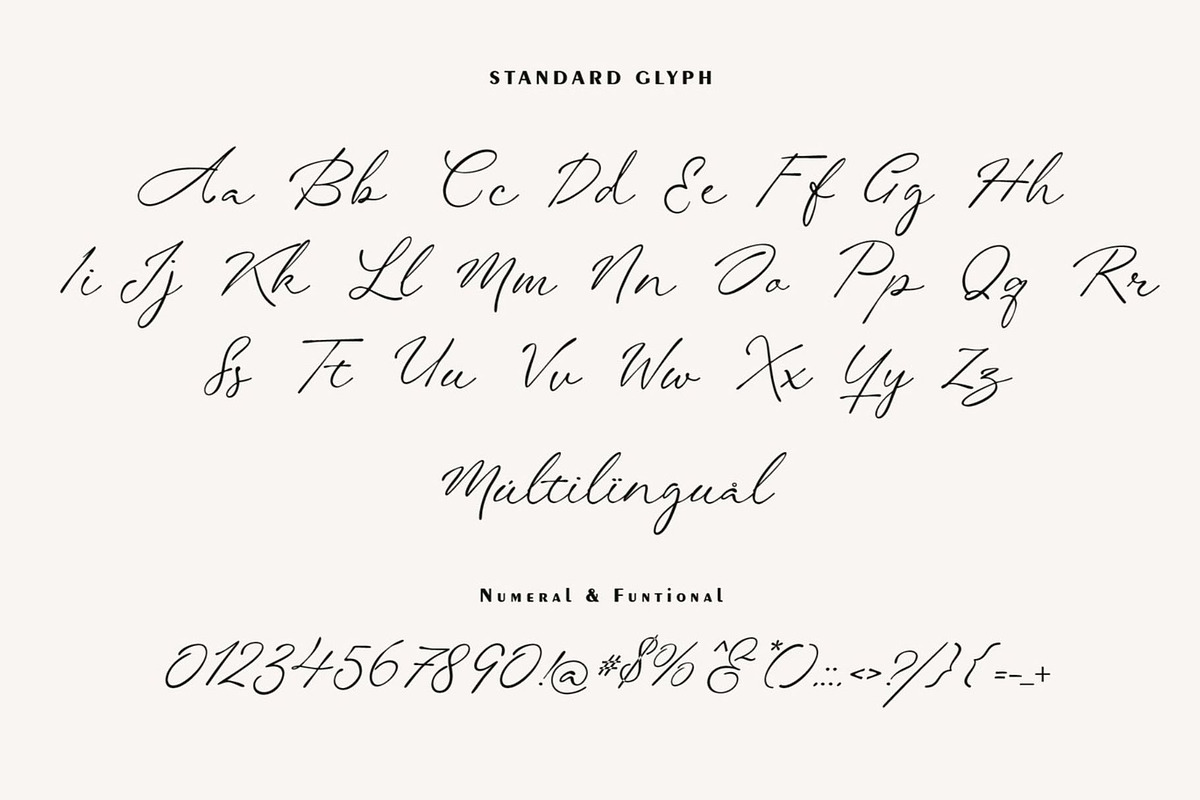 STANDARD GLYPH
Aa Bb Cc Dd Ee Ff Gg Hh
Ii Jj Kk Ll Mm Nn Oo Pp Qq Rr
Ss Tt Uu Vv Ww Xx Yy Zz
Múltilïnguål
Numeral & Funtional
01234567890!@#$%^&*().,:;<>?/}{=-_+